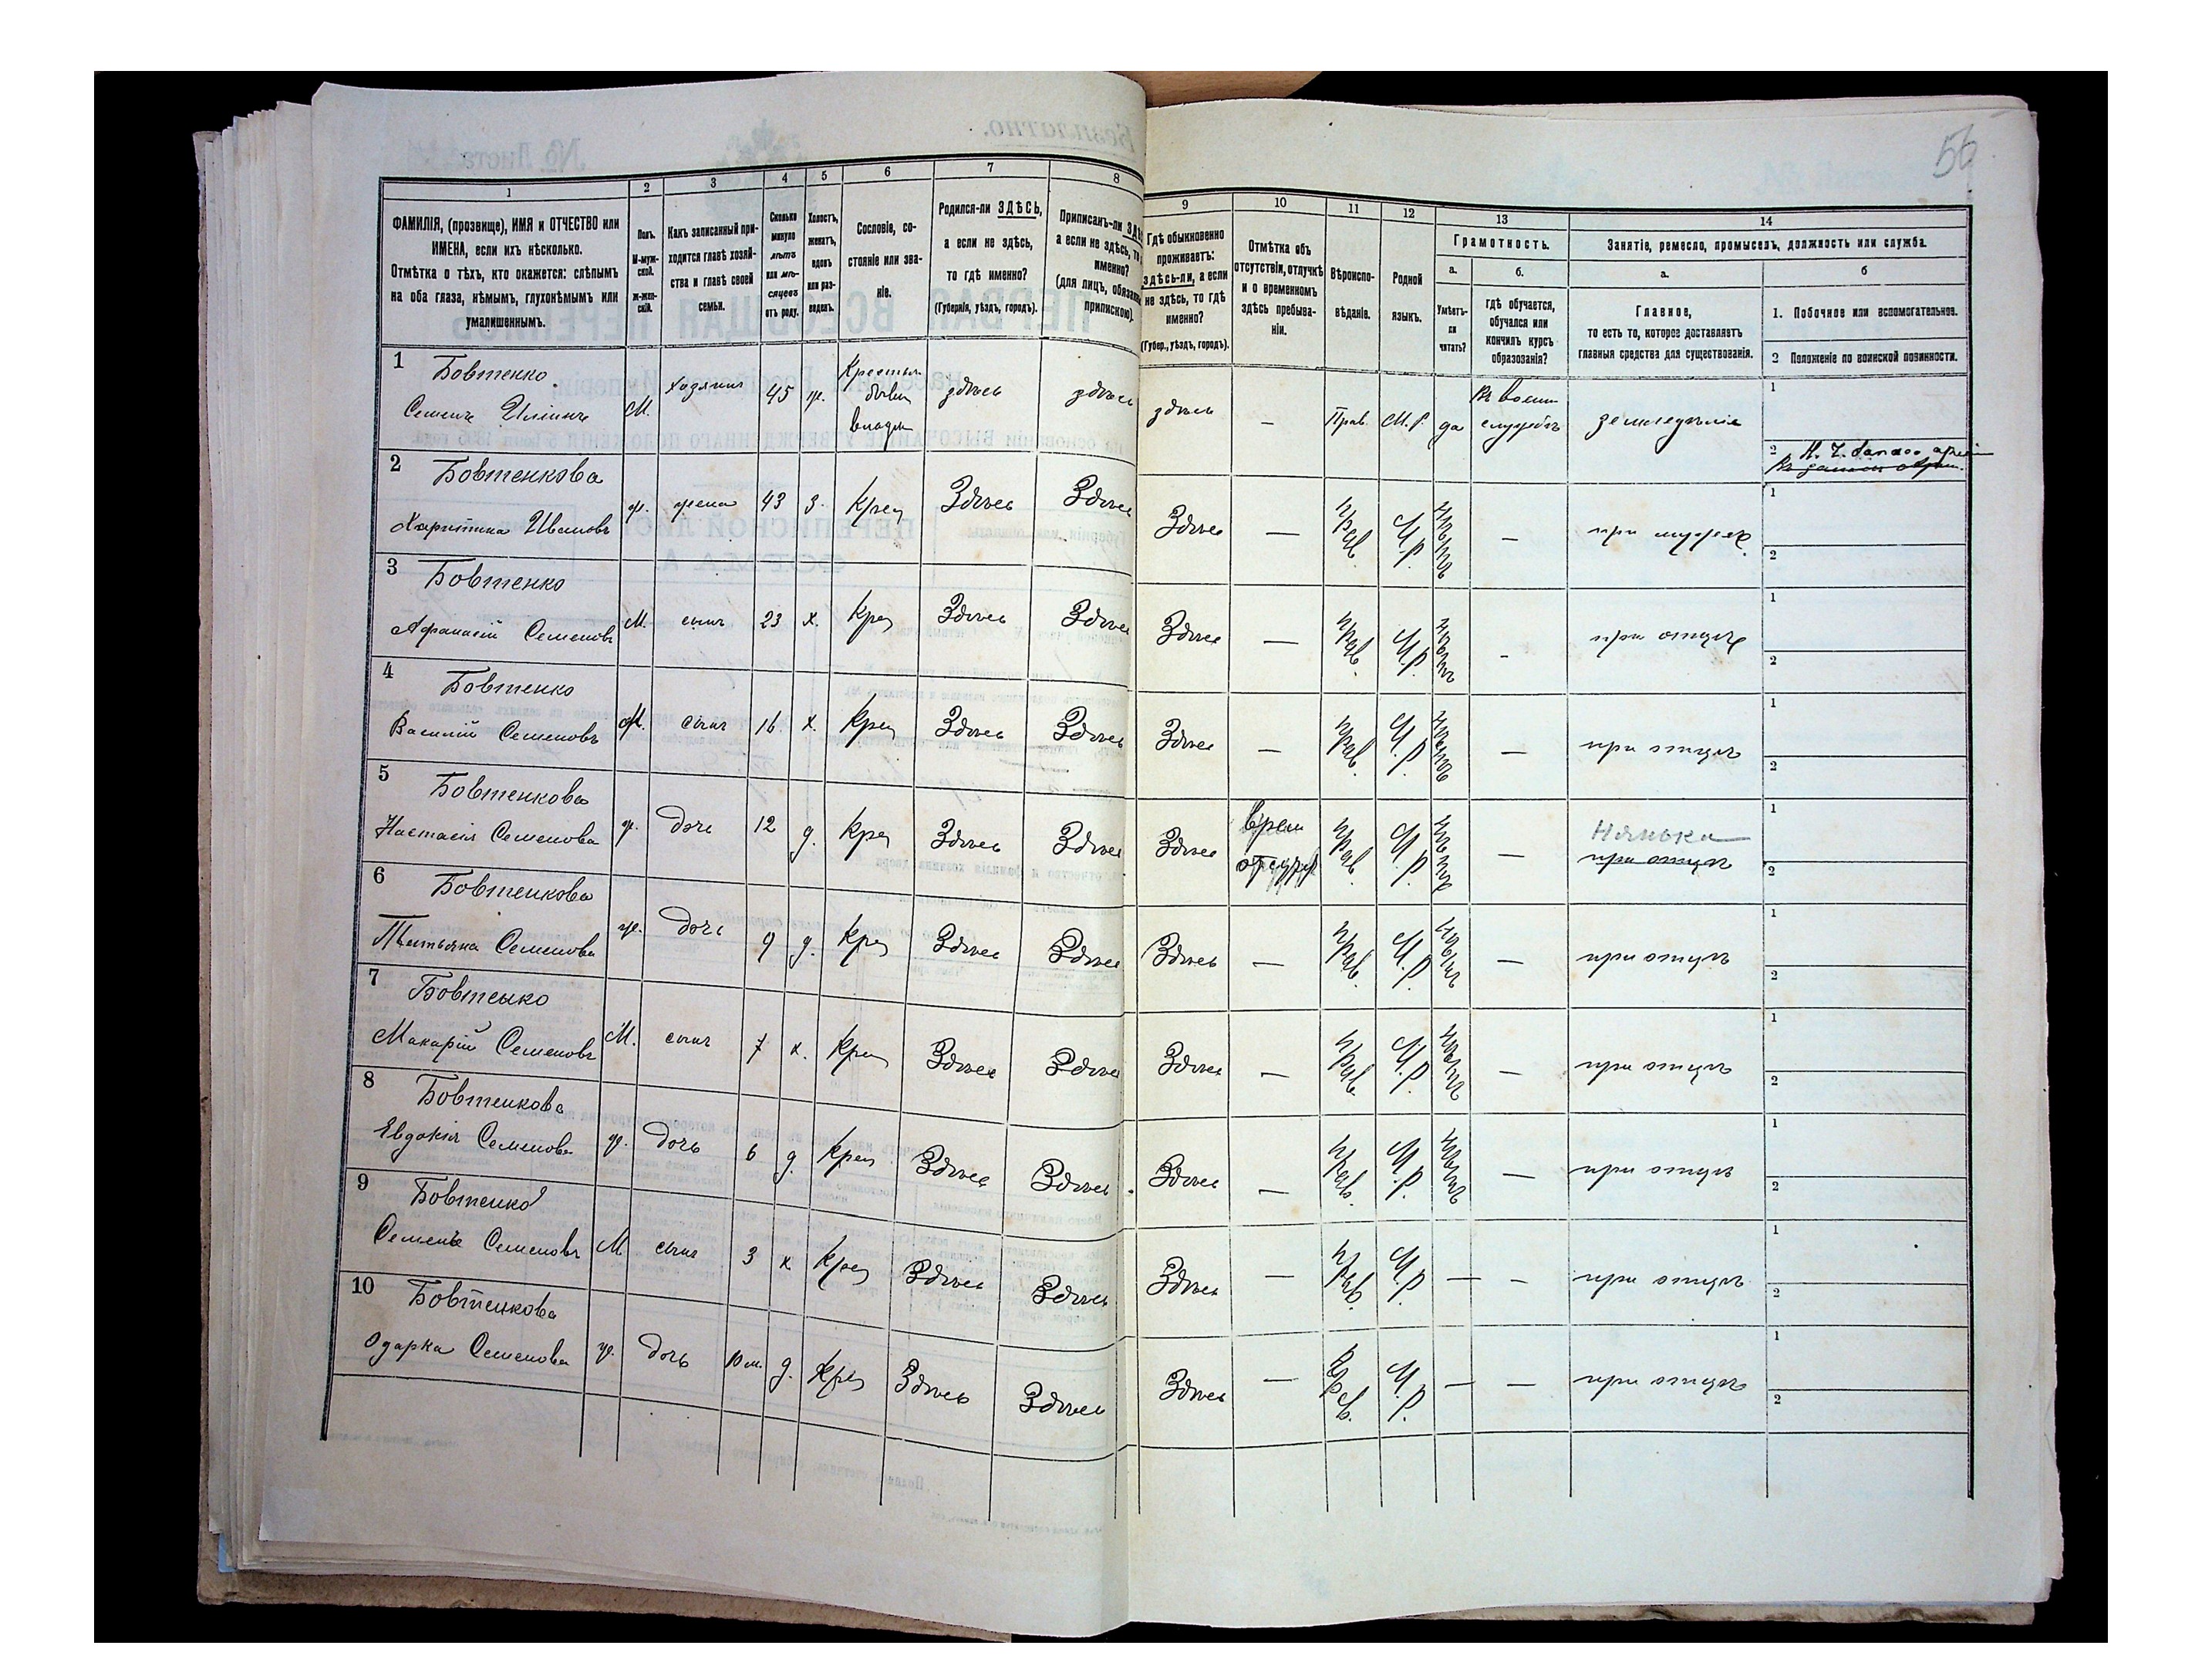 56
1 2 3 4 5 6 7 8 9 10 11 12 13 14
ФАМИЛІЯ, (прозвище), ИМЯ и ОТЧЕСТВО или
ИМЕНА, если ихъ нѣсколько.
Отмѣтка о тѣхъ, кто окажется: слѣпымъ
на оба глаза, нѣмымъ, глухонѣмымъ или
умалишеннымъ.
Полъ.
М-муж-
ской.
ж-жен-
скій.
Какъ записанный при-
ходится главѣ хозяй-
ства и главѣ своей
семьи.
Сколько
минуло
лѣтъ
или мѣ-
сяцевъ
отъ роду.
Холостъ,
женатъ,
вдовъ
или раз-
веденъ.
Сословіе, со-
стояніе или зва-
ніе.
Родился-ли ЗДѢСЬ,
а если не здѣсь,
то гдѣ именно?
(Губернія, уѣздъ, городъ).
Приписанъ-ли
а если не здѣсь,
именно?
(для лицъ,
припискою).
Гдѣ обыкновенно
проживаетъ:
здѣсь-ли, а если
не здѣсь, то гдѣ
именно?
(Губер., уѣздъ, городъ).
Отмѣтка объ
отсутствіи, отлучкѣ
и о временномъ
здѣсь пребыва-
ніи.
Вѣроиспо-
вѣданіе.
Родной
языкъ.
Грамотность.
а.
Умѣетъ-
ли
читать?
б.
гдѣ обучается,
обучался или
кончилъ курсъ
образованія?
Занятіе, ремесло, промыселъ, должность или служба.
а.
Главное,
то есть то, которое доставляетъ
главныя средства для существованія.
б
1. Побочное или вспомогательное.
2 Положеніе по воинской повинности.
1 Бовтенко
Семенъ М. хозяинъ 45 ж. здѣсь здѣсь здѣсь — Прав. М. Р. да службѣ земледѣліе 1
2
2 Бовтенкова
Харитина Иванов ж. жена 43 з. Крес Здѣсь Здѣсь Здѣсь — Прав. М. Р. нѣтъ — при мужѣ 1
2
3 Бовтенко
Афанасій Семеновъ М. сынъ 23 х. Крес Здѣсь Здѣсь Здѣсь — Прав. М. Р. нѣтъ - при отцѣ 1
2
4 Бовтенко
Василій Семеновъ М. сынъ 16 х. Крес Здѣсь Здѣсь Здѣсь — Прав. М. Р. нѣтъ — при отцѣ 1
2
5 Бовтенкова
Настасія Семенова ж. дочь 12 д. Крес Здѣсь Здѣсь Здѣсь врем Прав. М. Р. нѣтъ — Нянька
при отцѣ 1
2
6 Бовтенкова
Семенова ж. дочь 9 д. Крес Здѣсь Здѣсь Здѣсь — Прав. М. Р. нѣтъ — при отцѣ 1
2
7 Бовтенко
Макарій Семеновъ М. сынъ 7 х. Крес Здѣсь Здѣсь Здѣсь — Прав. М. Р. нѣтъ — при отцѣ 1
2
8 Бовтенкова
Евдокія Семенова ж. дочь 6 д. Крес Здѣсь Здѣсь Здѣсь — Прав. М. Р. нѣтъ — при отцѣ 1
2
9 Бовтенко
Семенъ Семеновъ М. сынъ 3 х Крес Здѣсь Здѣсь Здѣсь — Прав. М. Р. — - при отцѣ 1
2
10 Бовтенкова
Одарка Семенова ж. дочь 10 м. д. Крес Здѣсь Здѣсь Здѣсь — Прав. М. Р. — — при отцѣ 1
2